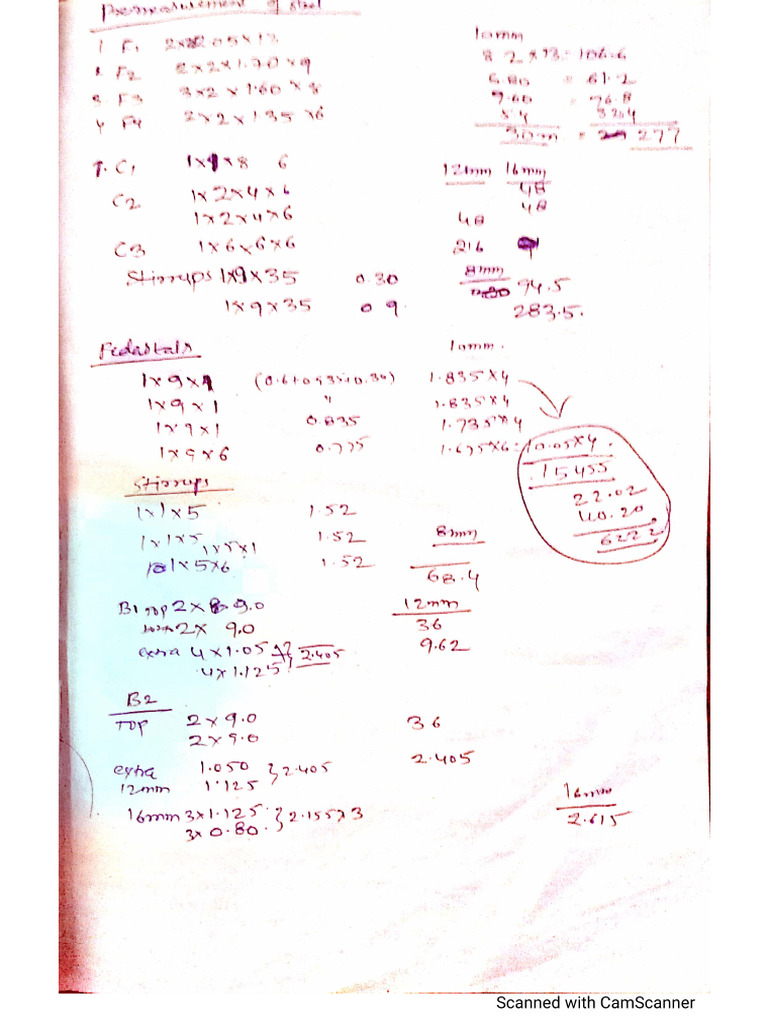 Premeasurement of Steel
1 F1 2x2x2.05x13 10mm
2 F2 2x2x1.70x9 8.2x13=106.6
3 F3 3x2x1.60x8 6.80 = 61.2
4 F4 2x2x1.35x6 9.60 = 76.8
5.4 32.4
30m = 277
C1 1x9x8 6 12mm 16mm
48
C2 1x2x4x6 48
1x2x4x6 48
C3 1x6x6x6 216
Stirrups 1x9x35 0.30 8mm 94.5
1x9x35 0.9 283.5
Pedastals 10mm
1x9x1 1.835x4
1x9x1 " 1.835x4
1x9x1 0.835 1.735x4
1x9x6 0.775 1.675x6=10.05x4
15455
22.02
40.20
6222
Stirrups
1x1x5 1.52
1x1x5 1x5x1 1.52 8mm
1x5x6 1.52 68.4
B1 Top 2x 9.0 12mm
2x 9.0 36
extra 4x1.05 2.405 9.62
4x1.125
B2
Top 2x9.0 36
2x9.0
extra 1.050 } 2.405 2.405
12mm 1.125
16mm 3x1.125 } 2.155x3 16mm
3x0.80 2.615
Scanned with CamScanner